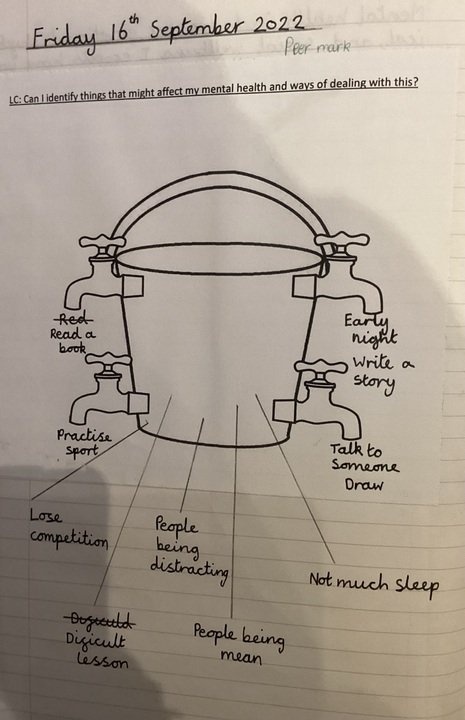 Friday 16th September 2022
Peer mark
LC: Can I identify things that might affect my mental health and ways of dealing with this?
Red
Read a
book
Early
night
Write a
story
Practise
sport
Talk to
Someone
Draw
Lose
competition
People
being
distracting
Not much sleep
Dificult
lesson
People being
mean